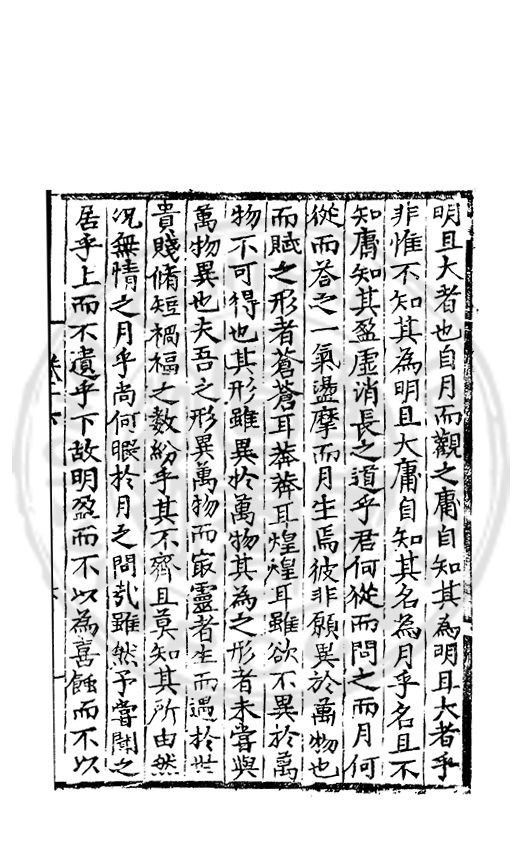 明且大者也自月而觀之庸自知其為明且大者乎
非惟不知其為明且大庸自知其名為月乎名且不
知庸知其盈虛消長之道乎君何從而問之而月何
從而荅之一氣盪摩而月生焉彼非願異於萬物也
而賦之形者蒼蒼耳莽莽耳煌煌耳雖欲不異於萬
物不可得也其形雖異於萬物其為之形者未甞與
萬物異也夫吾之形異萬物而㝡靈者生而遇於世
貴賤脩短禍福之數紛乎其不齊且莫知其所由然
况無情之月乎尚何暇於月之問㢤雖然予甞聞之
居乎上而不遺乎下故明盈而不以為喜蝕而不以